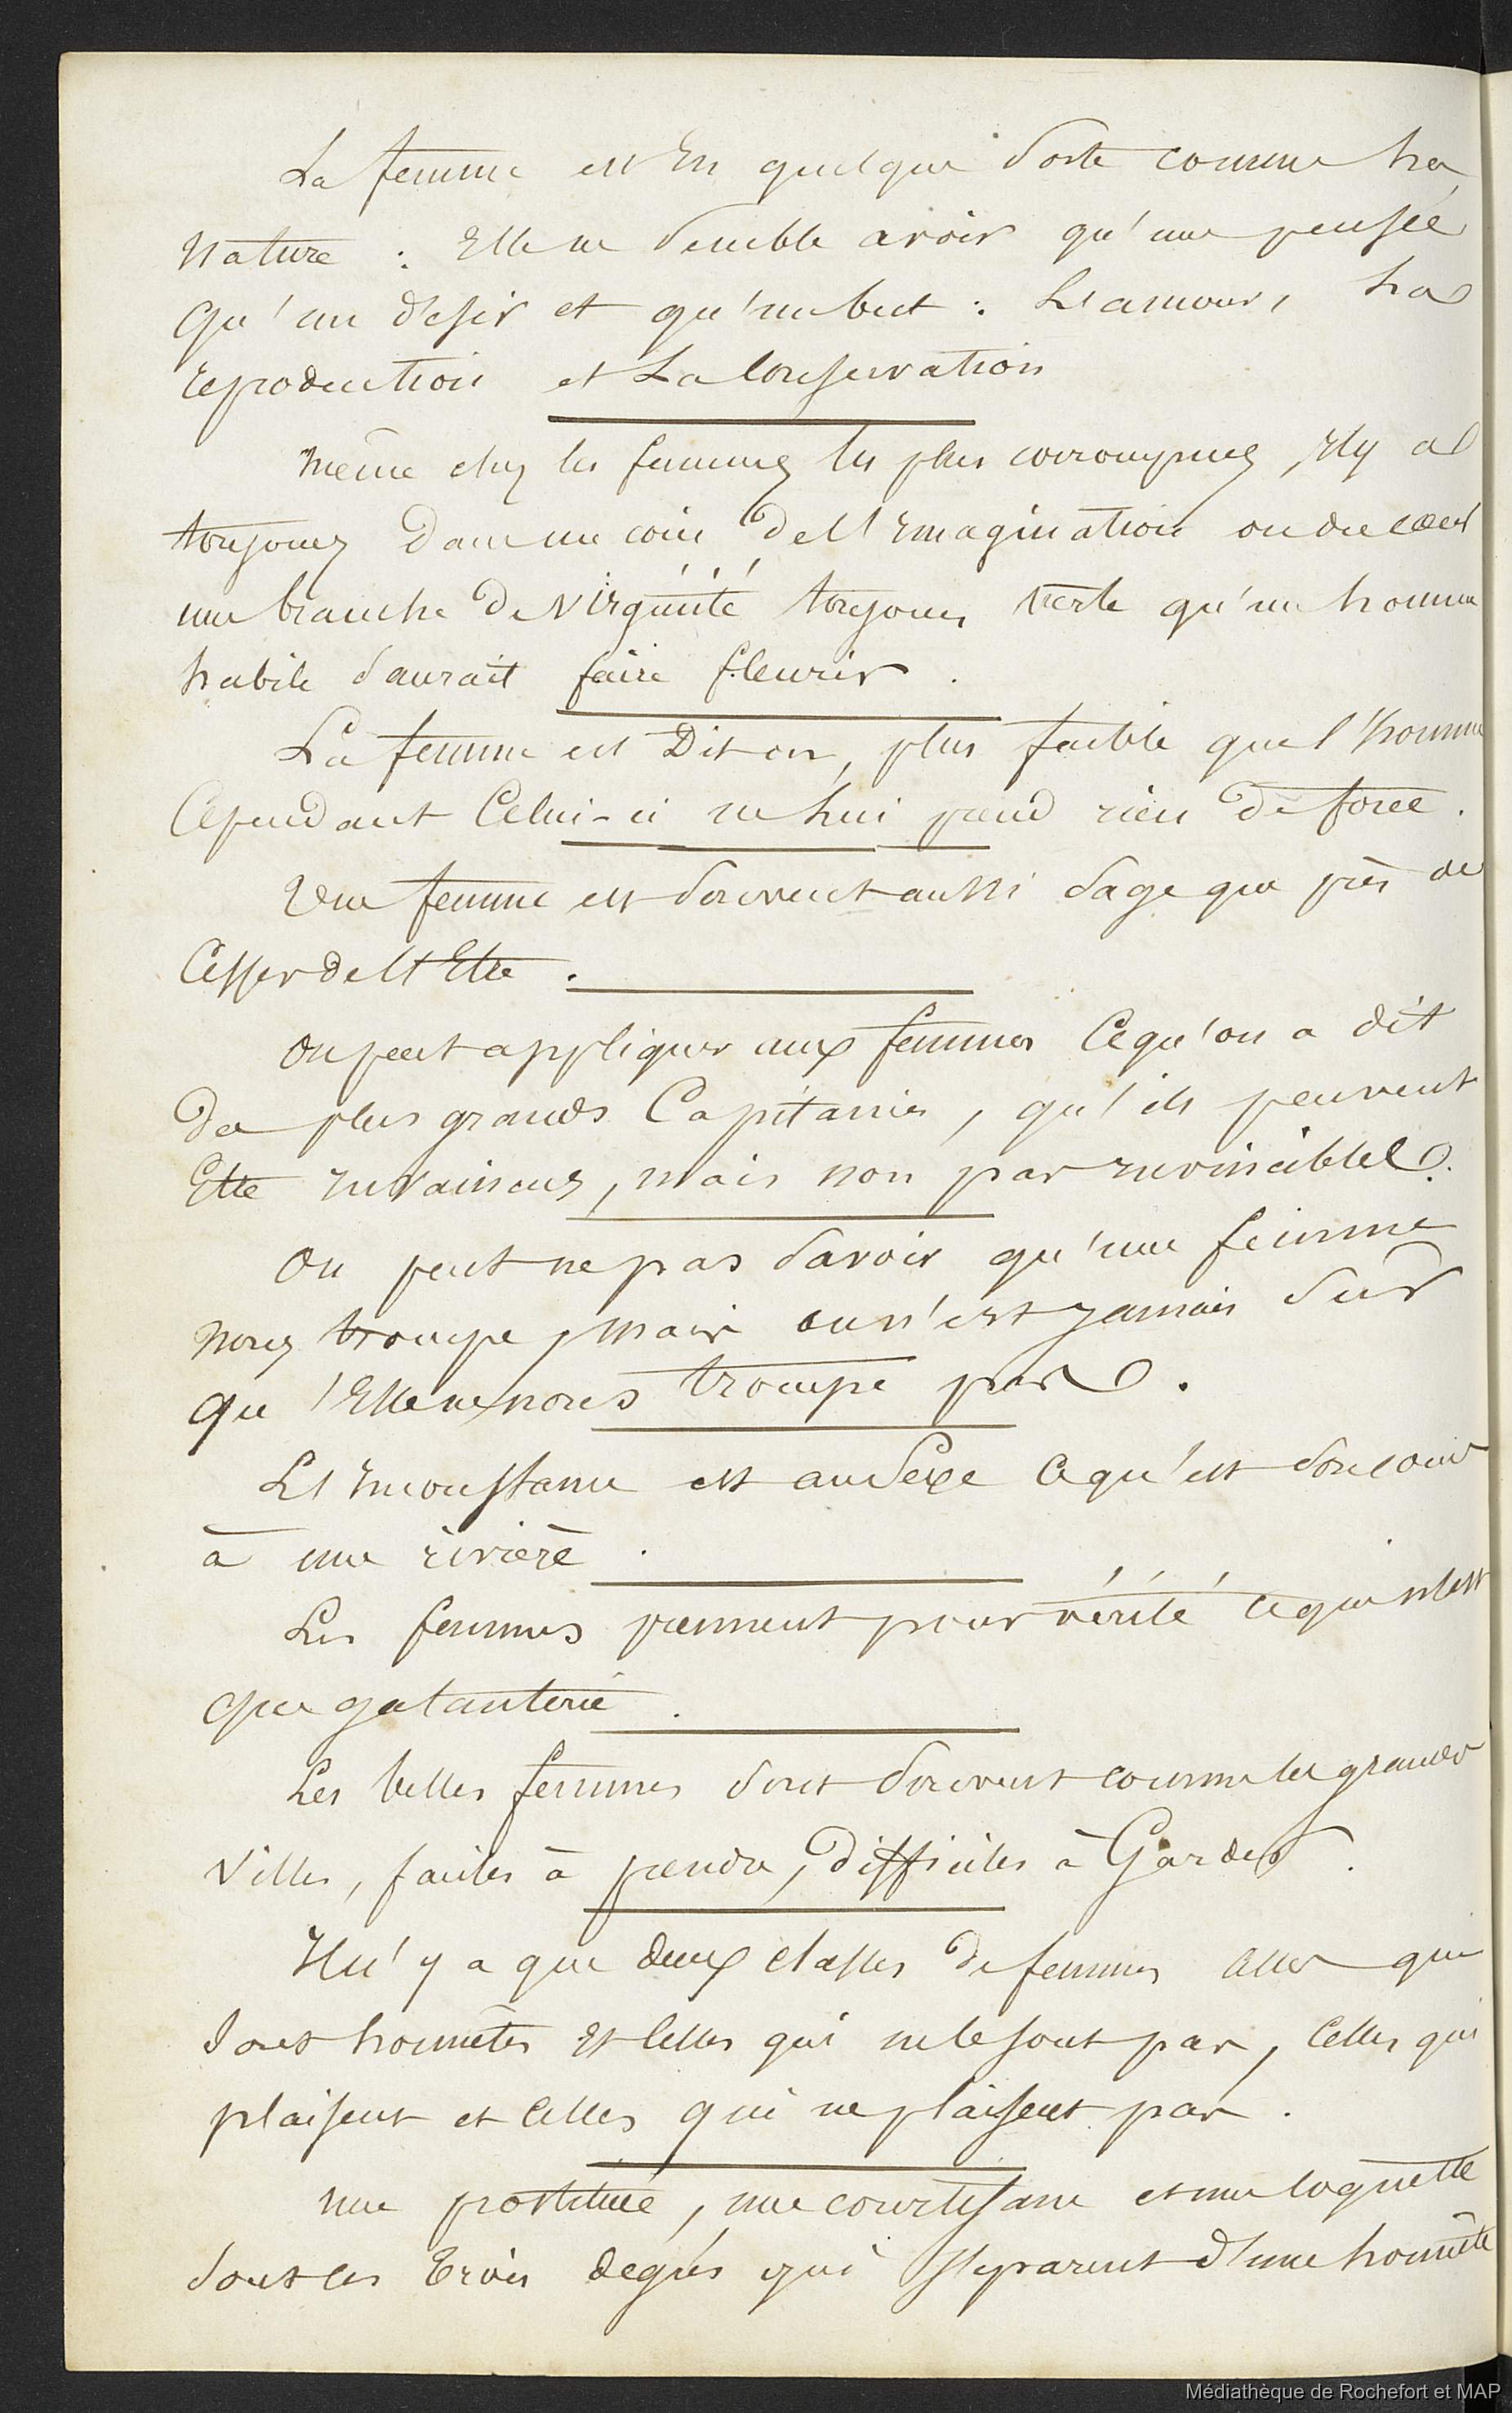 La femme est En quelque Sorte comme La
Nature : Elle ne Semble avoir qu'une pensée
Qu'un désir et qu'un but : L'amour, La
reproduction et La Conservation
Même chez les femmes les plus corrompues, Il y a
toujours Dans un coin De l'Imagination ou du cœur
une branche De Virginité toujours verte qu'un homme
habile Saurait faire fleurir.
La femme est Dit on, plus faible que l'homme
Cependant Celui-ci ne Lui prend rien De force.
Une femme est Souvent aussi Sage que près de
Cesser de l'Etre.
On peut appliquer aux femmes Ce qu'on a dit
De plus grands Capitaines, qu'ils peuvent
Etre Invaincus, mais non pas Invincibles.
On peut ne pas Savoir qu'une femme
Nous trompe, Mais on n'est Jamais Sûr
Qu'Elle ne nous trompe pas.
L'Inconstance est au Sexe Ce qu'est Son cours
à une rivière.
Les femmes prennent pour vérité Ce qui n'est
que galanterie.
Les belles femmes Sont Souvent comme les grandes
Villes, faciles à prendre, Difficiles à Garder.
Il n'y a que deux classes De femmes Celles qui
Sont honnêtes Et Celles qui ne le sont pas, Celles qui
plaisent et Celles qui ne plaisent pas.
une prostituée, une courtisane et une coquette
Sont les trois degrés qui Séparent d'une honnête
Médiathèque de Rochefort et MAP